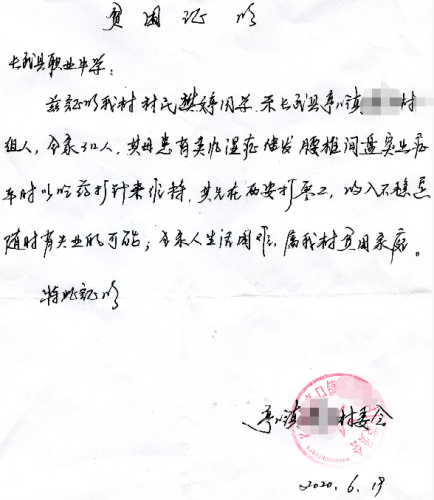 贫困证明
长武县职业中学：
兹证明我村村民樊婷同学，系长武县亭口镇村
组人，全家3口人，其母患有类风湿症并发腰椎间盘突出症
平时以吃药打针来维持，其父在西安打零工，收入不稳定
随时有失业的可能；全家人生活困难，属我村贫困家庭。
特此证明
亭口镇村委会
2020.6.19